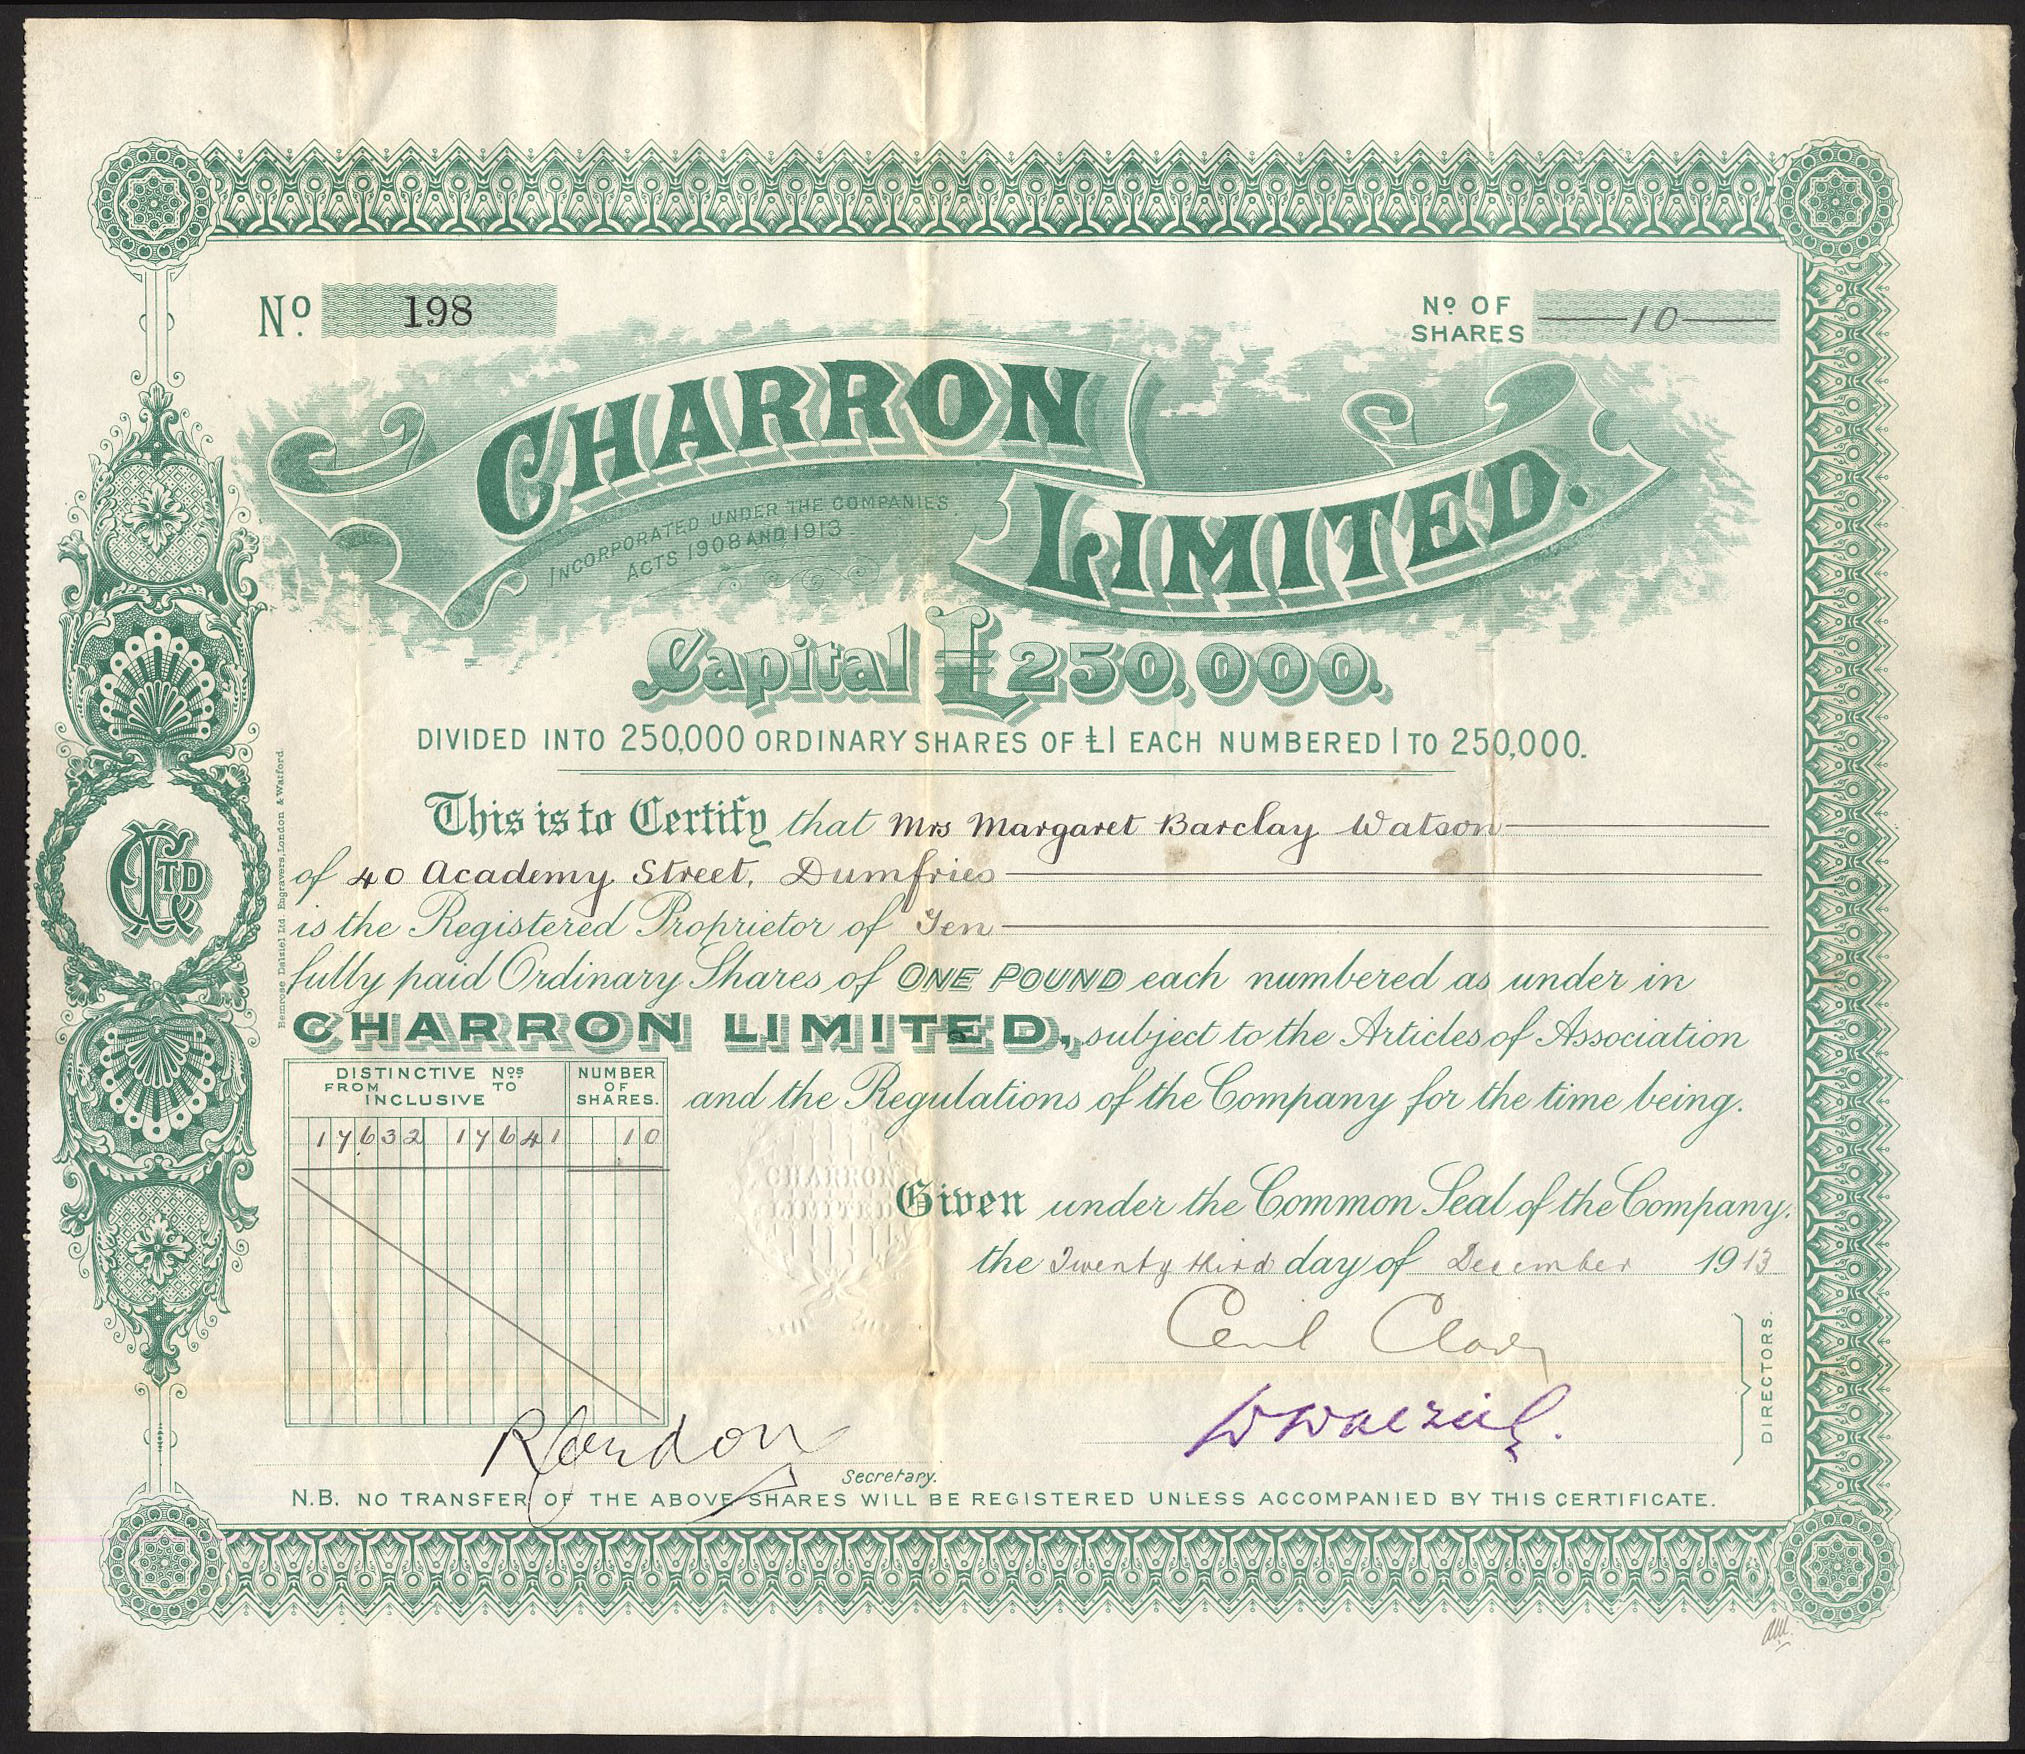 Nº. 198
Nº OF SHARES 10
CHARRON LIMITED.
INCORPORATED UNDER THE COMPANIES
ACTS 1908 AND 1913
Capital £250,000.
DIVIDED INTO 250,000 ORDINARY SHARES OF £1 EACH NUMBERED 1 TO 250,000.
This is to Certify that Mrs Margaret Barclay Watson
of 40 Academy Street, Dumfries
is the Registered Proprietor of Ten
fully paid Ordinary Shares of ONE POUND each numbered as under in
CHARRON LIMITED, subject to the Articles of Association
and the Regulations of the Company for the time being.
DISTINCTIVE Nºs
FROM TO
INCLUSIVE
NUMBER
OF
SHARES.
17632 17641 10
CHARRON
LIMITED
Given under the Common Seal of the Company,
the Twenty third day of December 1913
Cecil
DIRECTORS.
Secretary.
N.B. NO TRANSFER OF THE ABOVE SHARES WILL BE REGISTERED UNLESS ACCOMPANIED BY THIS CERTIFICATE.
Bemrose Dalziel Ltd. Engravers, London & Watford
CLTD